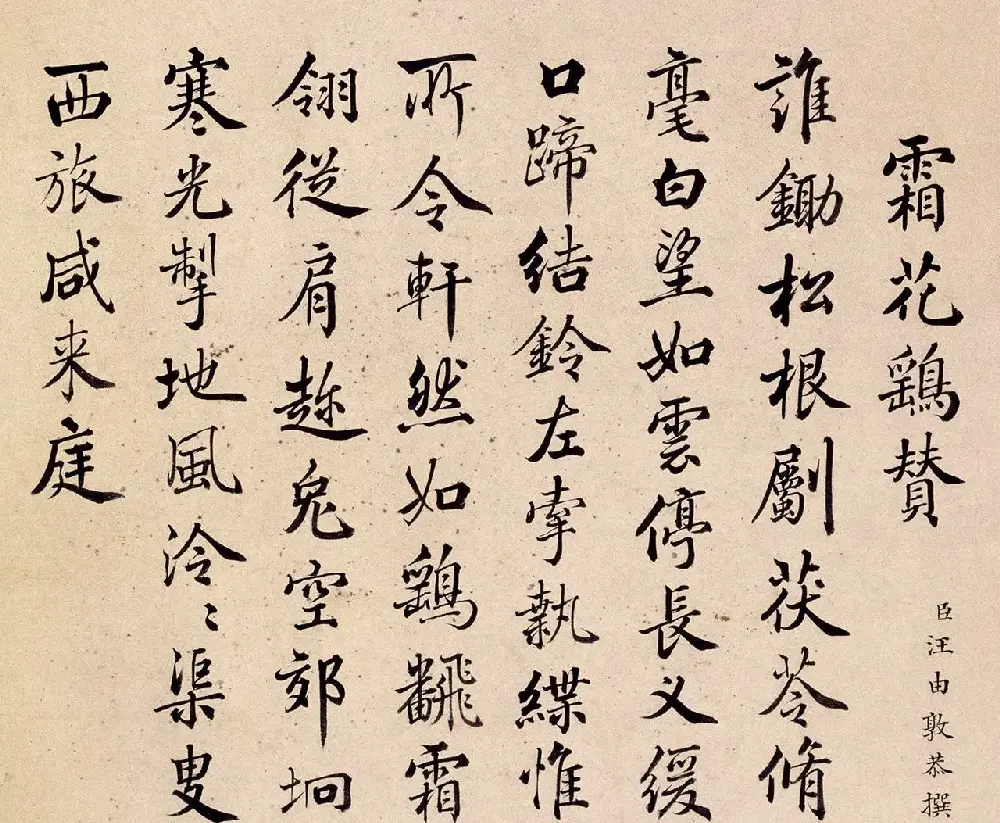 霜花鷂賛
臣汪由敦恭撰
誰鋤松根劚茯苓脩
毫白望如雲停長义緩
口蹄結鈴左牽執緤惟
所令軒然如鷂飜霜
翎從肩趂兔空郊坰
寒光掣地風泠〻渠叟
西旅咸来庭